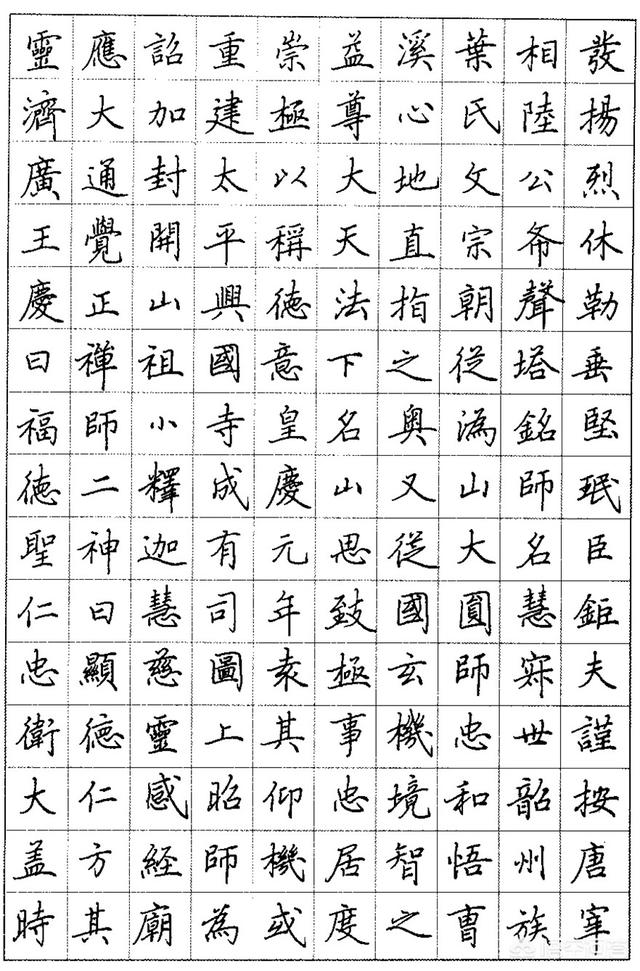 發揚烈休勒垂堅珉臣鉅夫謹按唐宰
相陸公希聲塔銘師名慧寂世韶州族
葉氏文宗朝從溈山大圓師忠和悟曹
溪心地直指之奥又從國玄機境智之
益尊大天法下名山思致極事忠居度
崇極以稱德意皇慶元年袁其仰機或
重建太平興國寺成有司圖上昭師為
詔加封開山祖小釋迦慧慈靈感經廟
應大通覺正禪師二神曰顯德仁方其
靈濟廣王慶曰福德聖仁忠衛大盖時